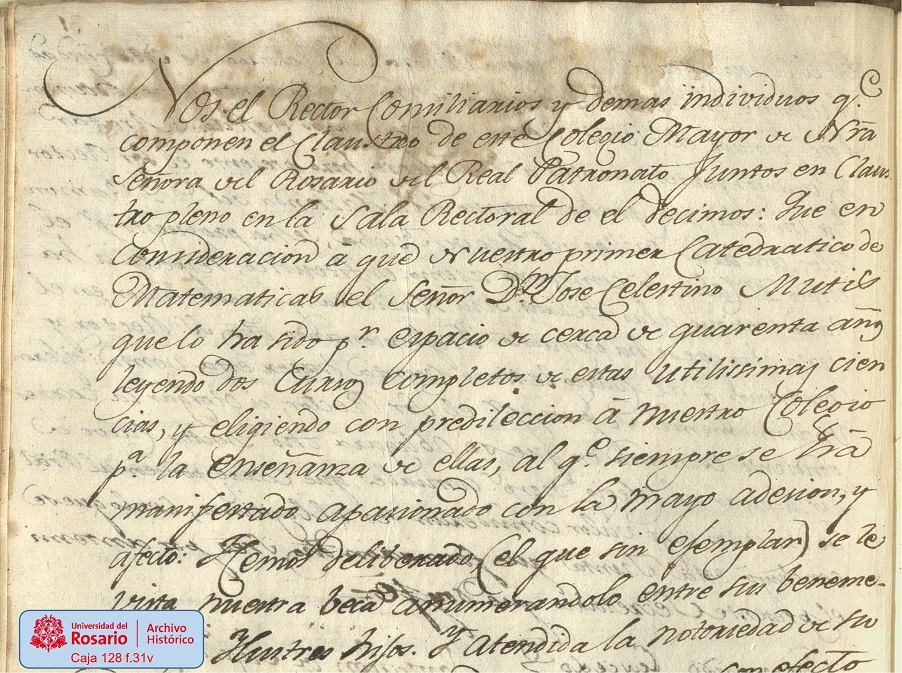 Nos el Rector Consiliarios y demas individuos q.e
componen el Claustro de este Colegio Mayor de Nrã
Señora del Rosario del Real Patronato Juntos en Claus
tro pleno en la Sala Rectoral de el decimos: Que en
Consideracion a que Nuestro primer Catedratico de
Matematicas el Señor D.n Jose Celestino Mutis
que lo ha sido p.r espacio de cerca de quarenta años
leyendo dos Cursos Completos de estas utilissimas cien
cias, y eligiendo con predileccion â nuestro Colegio
p.a la enseñanza de ellas, al q.e siempre se hã
manifestado apasionado con la mayo adesion, y
afecto: Hemos deliberado (el que sin esemplar) se le
vista nuestra beca anumerandolo entre sus beneme-
Ylustres hijos. Y atendida la notoriedad de su
con efecto
Universidad del
Rosario
Archivo
Histórico
Caja 128 f.31v